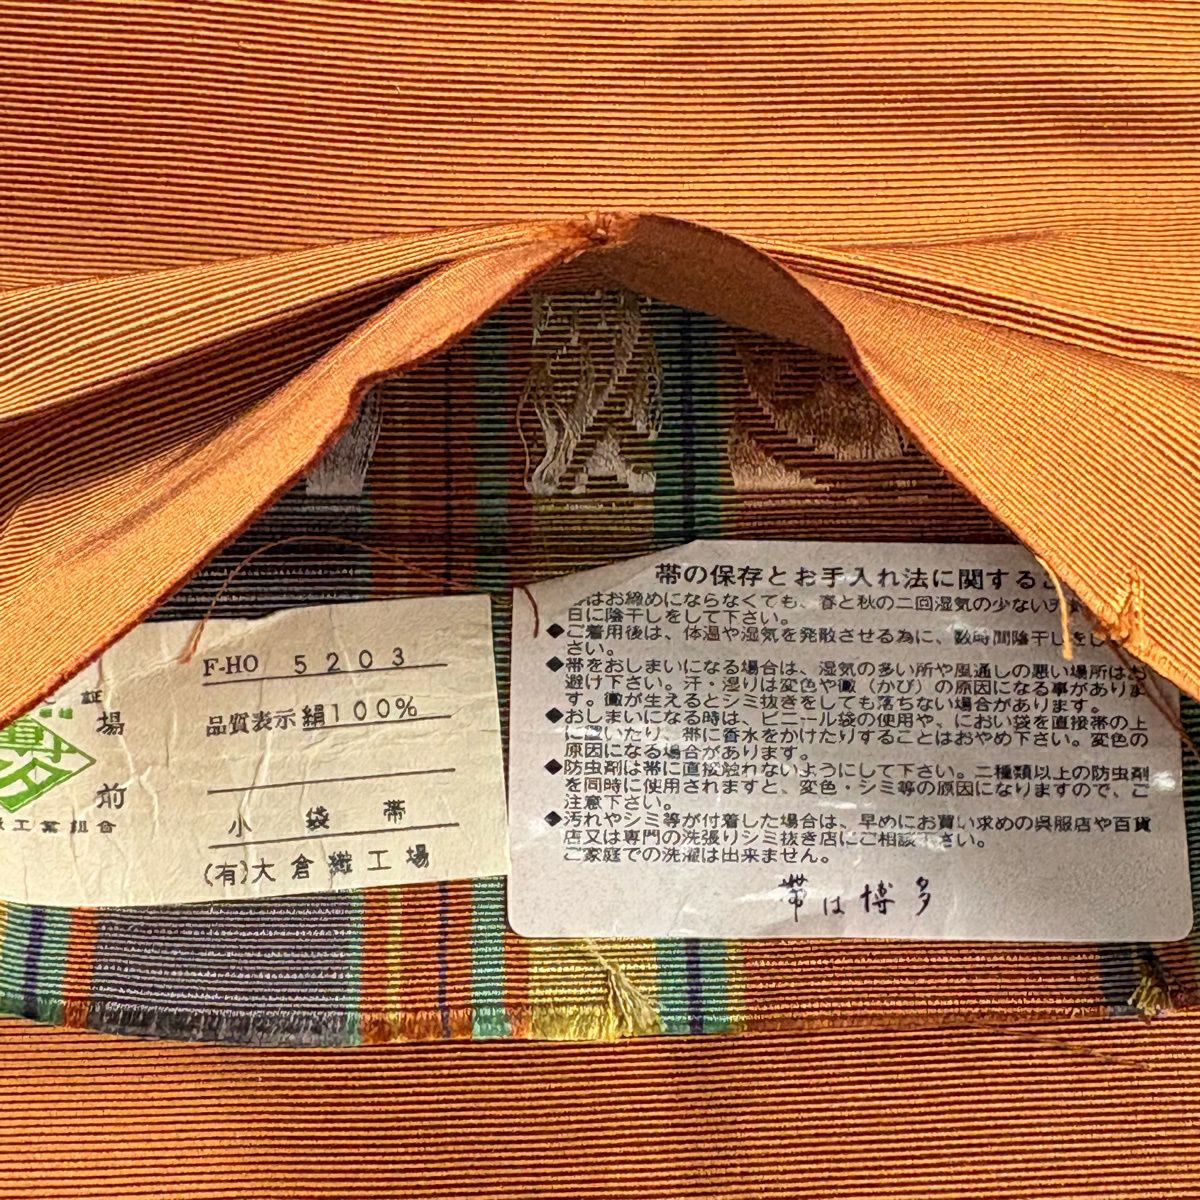 証
場
前
工業組合
F-HO 5203
品質表示 絹100%
小袋帯
(有)大倉織工場
帯の保存とお手入れ法に関するこ
はお締めにならなくても、春と秋の二回湿気の少ない天
日に陰干しをして下さい。
◆ご着用後は、体温や湿気を発散させる為に、数時間陰干しをし
さい。
◆帯をおしまいになる場合は、湿気の多い所や風通しの悪い場所はお
避け下さい。汗・湿りは変色や黴（かび）の原因になる事がありま
す。黴が生えるとシミ抜きをしても落ちない場合があります。
◆おしまいになる時は、ビニール袋の使用や、におい袋を直接帯の上
に置いたり、帯に香水をかけたりすることはおやめ下さい。変色の
原因になる場合があります。
◆防虫剤は帯に直接触れないようにして下さい。二種類以上の防虫剤
を同時に使用されますと、変色・シミ等の原因になりますので、ご
注意下さい。
◆汚れやシミ等が付着した場合は、早めにお買い求めの呉服店や百貨
店又は専門の洗張りシミ抜き店にご相談下さい。
ご家庭での洗濯は出来ません。
帯は博多